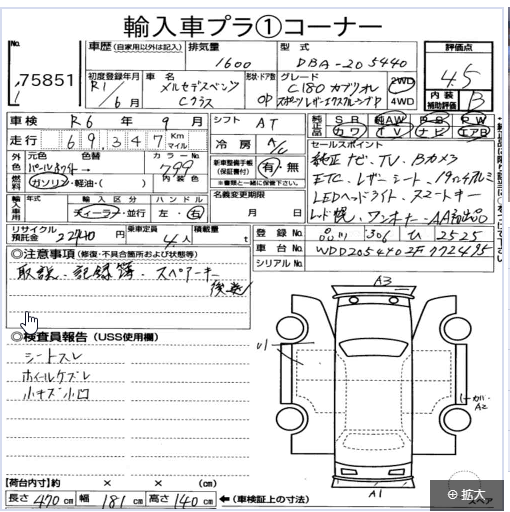 輸入車プラ①コーナー
No. 75851
車歴 (自家用以外は記入) 排気量 1600 型式 DBA-205440
評価点 4.5
初度登録年月 R1/6月 車名 メルセデスベンツ Cクラス 形状・ドア数 OP グレード C180 カブリオレ スポーツ レザーエクスクルシブP 2WD 4WD
内装補助評価 B
車検 R6年 9月 シフト AT
純正品 SR 純AW PS PW カワ TV ナビ エアB
走行 69,347 Km マイル 冷房 A/C
セールスポイント
純正ナビ、TV、Bカメラ
外色 元色 パールホワイト→ 色替 カラーNo. 799 内装色
新車整備手帳(保証書付) 有・無
※書類と一緒に保管下さい。
ETC、レザーシート、19インチアルミ
燃料 ガソリン・軽油・( )
LEDヘッドライト、スマートキー
輸入車用 年式 輸入区分 ディーラー・並行 ハンドル 左・右
名義変更期限 月 日
レッド幌、ワンオーナー、AA初出品
リサイクル預託金 円 乗車定員 4人 積載量 t
登録No. 品川 306 ひ 2525
車台No. WDD2054402F772435
シリアルNo.
◎注意事項 (修復・不具合箇所および状態等)
取説、記録簿、スペアーキー
後送!
◎検査員報告 (USS使用欄)
シートスレ
ホイールケズレ
小キズ小凹
A3
A2
A1
【荷台内寸】約 × × (cm)
長さ 470 cm 幅 181 cm 高さ 140 cm ←(車検証上の寸法)
スペア
⊕ 拡大